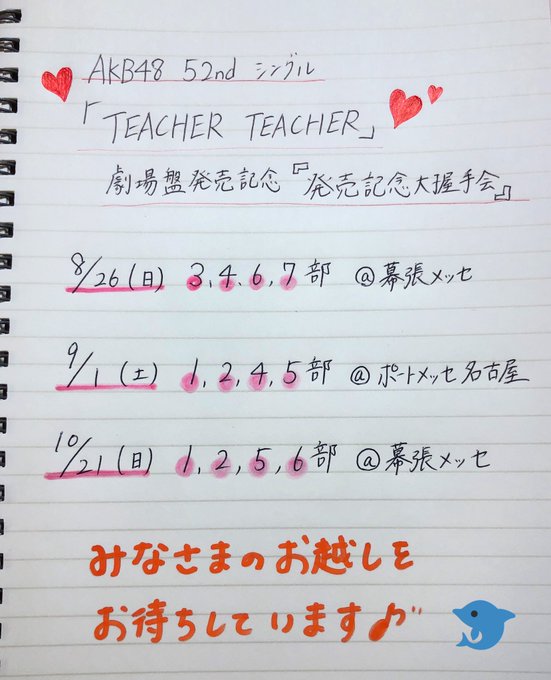 AKB48 52nd シングル
「TEACHER TEACHER」
劇場盤発売記念『発売記念大握手会』
8/26(日) 3,4,6,7部 @幕張メッセ
9/1(土) 1,2,4,5部 @ポートメッセ名古屋
10/21(日) 1,2,5,6部 @幕張メッセ
みなさまのお越しを
お待ちしています♪